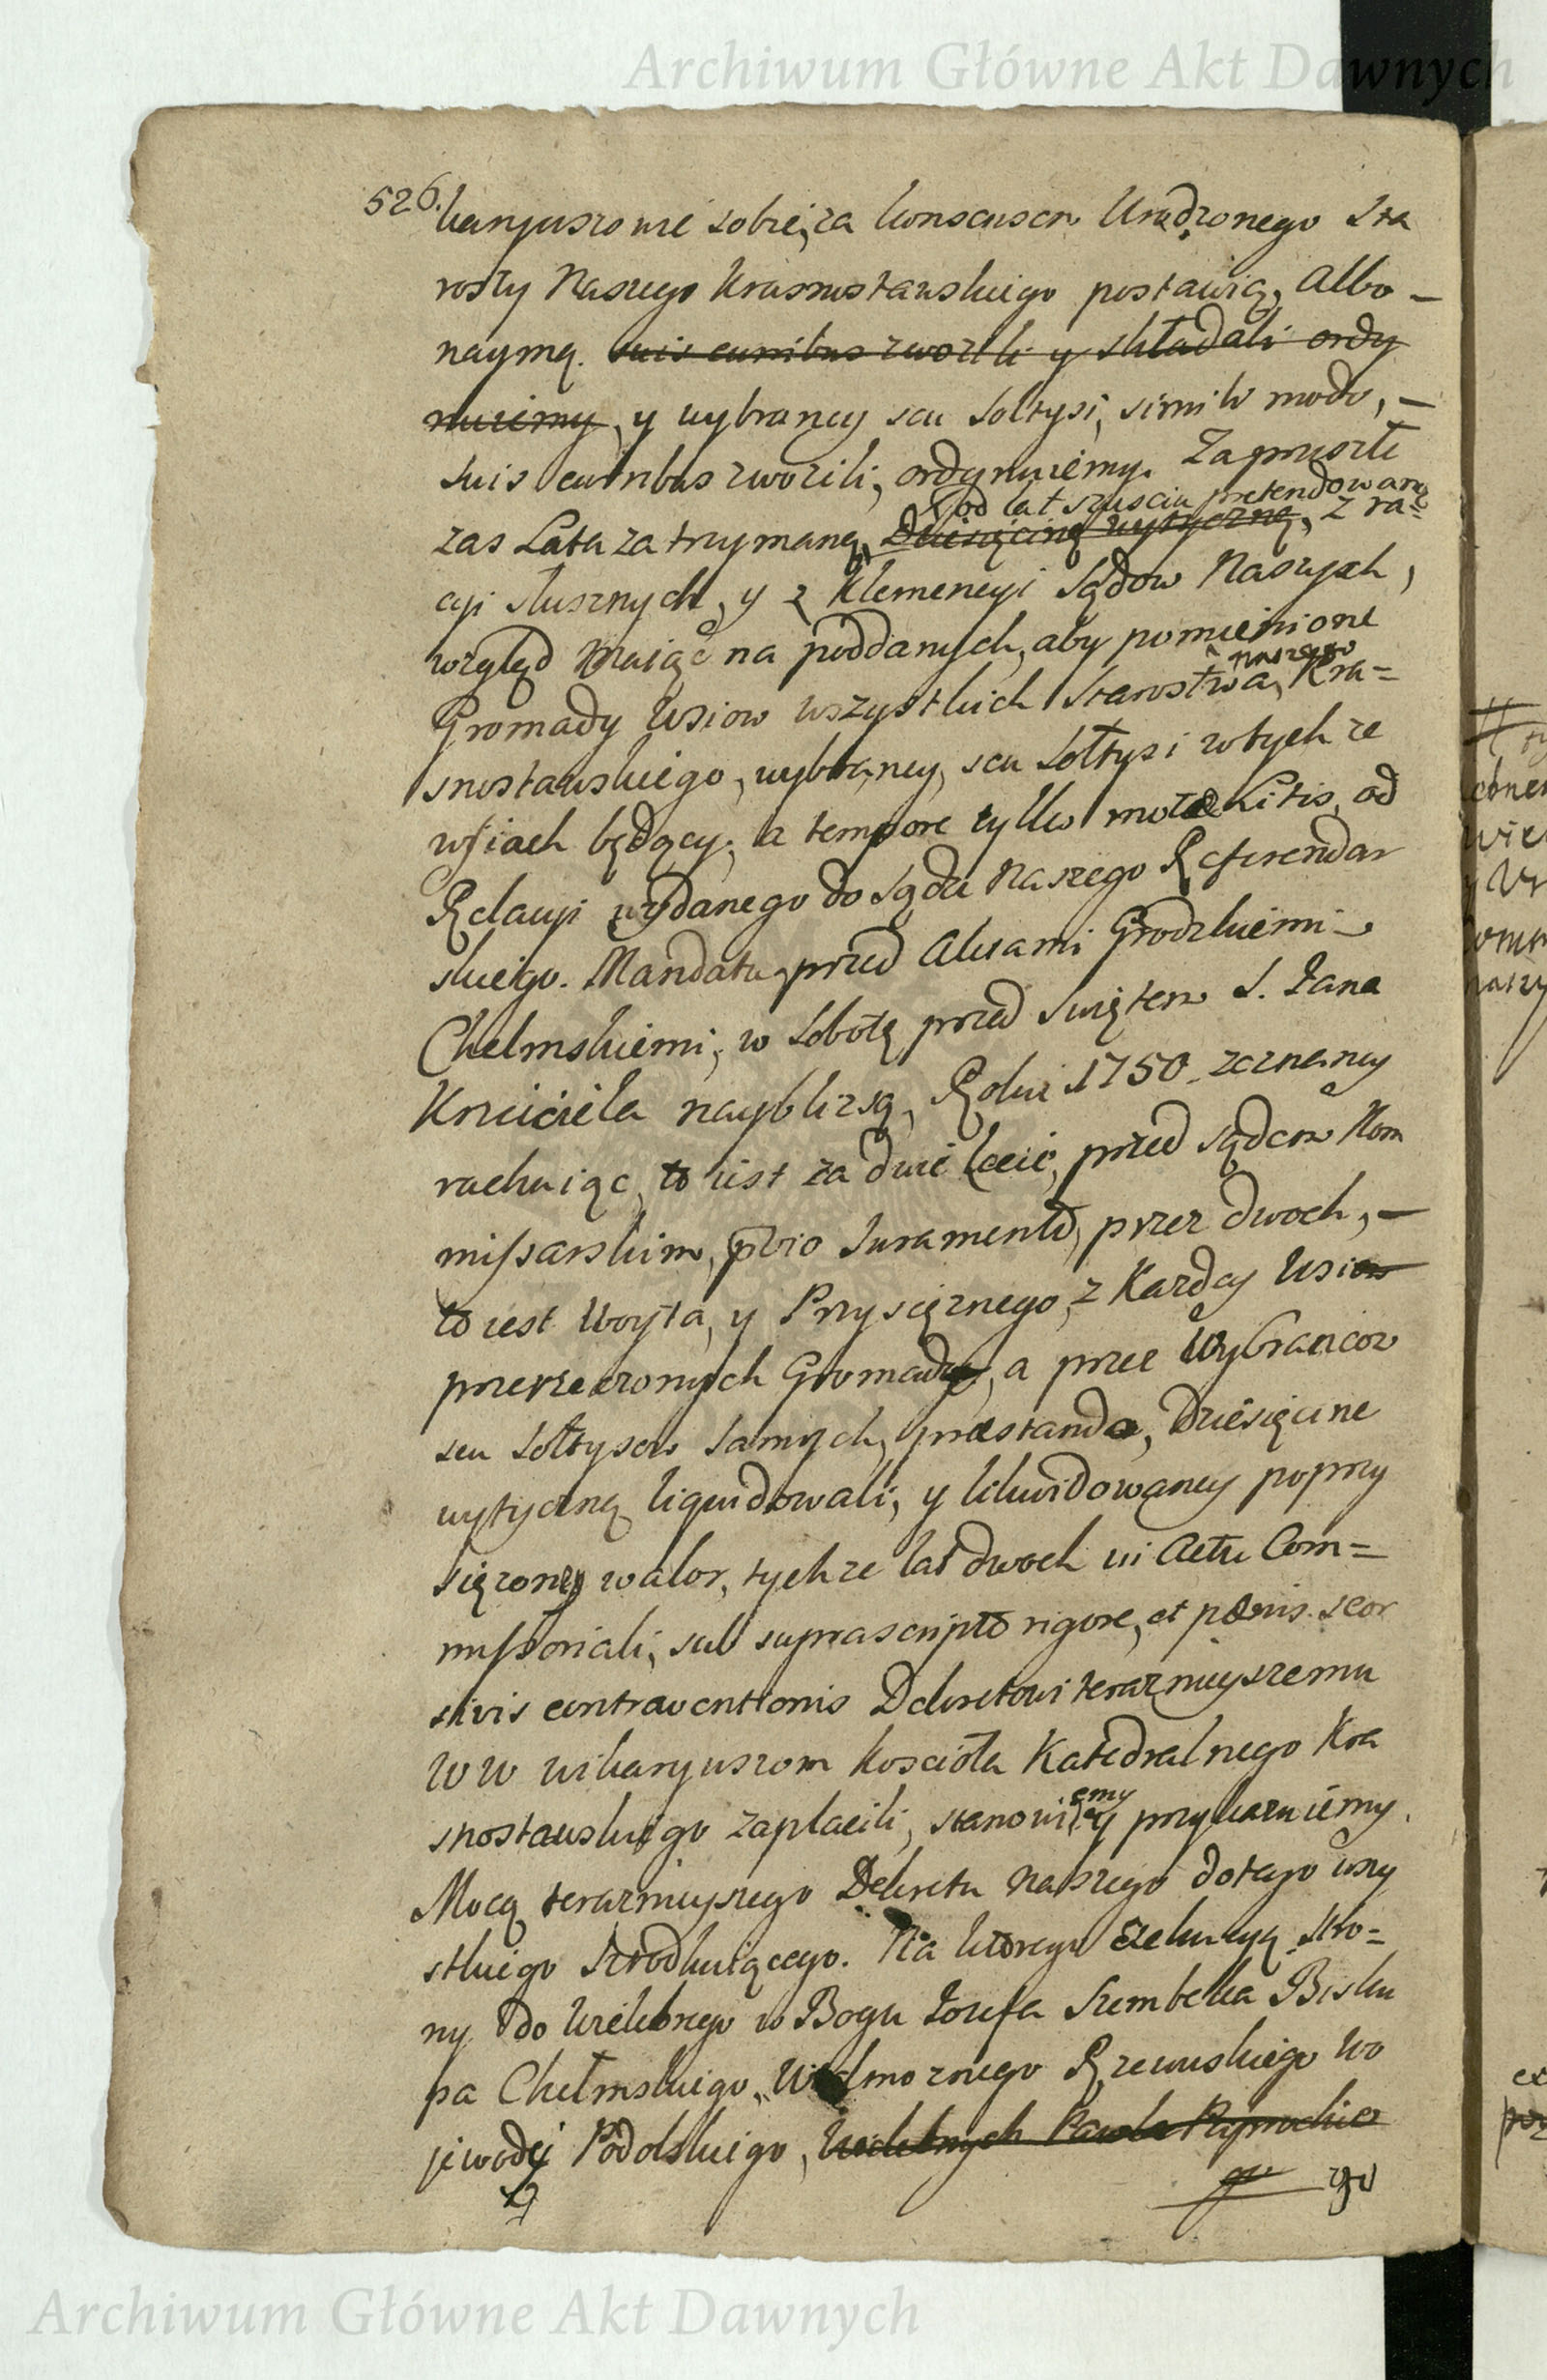 Archiwum Główne Akt Dawnych
526.
karyuszowie sobie, za konsensem Urodzonego Sta
rosty Naszego Krasnostawskiego postawią, Albo
naymą. suis curribus zwozili y składali ordy
nuiemy, y wybrancy seu Sołtysi, simili modo,
suis curribus zwozili, ordynuiemy. Zaprzeszłe
od lat sześciu pretendowaną
zas Lata zatrzymaną, Dziesięcinę wytyczną, z ra=
cyi słusznych, y z Klemencyi Sądow Naszych,
wzgląd maiąc na poddanych, aby pomienione
naszego
Gromady Wsiow wszystkich Starostwa, Kra=
snostawskiego, wybrancy, seu Sołtysi w tychze
wsiach będący, a tempore tylko motae Litis, od
Relacyi wydanego do Sądu Naszego Referendar
skiego. Mandatu, przed Aktami Grodzkiemi
Chełmskiemi, w Sobotę przed Swiętem S. Jana
Krzciciela nayblizszą, Roku 1750. zeznaney
rachuiąc, to iest za dwie lecie, przed sądem Kom
missarskim, pvio Juramento, przez dwoch,
to iest Woyta, y Przysięznego, z Kazdey Wsiow
przerzeczonych Gromady, a przez Wybrancow
seu Sołtysow samych, praestando, Dziesięcine
wytyczną liquidowali, y likwidowaney poprzy
sięzoney walor, tychze lat dwoch in Actu Com=
missoriali, sub suprascripto rigore, et poenis seor
sivis contraventionis Dekretowi teraznieyszemu
WW wikaryuszom Koscioła Katedralnego Kra
emy
snostawskiego zapłacili, stanowi y przykazuiemy.
Mocą teraznieyszego Dekretu Naszego do tego wszy
stkiego szrodkuiącego. Na ktorego Exekucyą stro=
ny do Wielebnego w Bogu Jozefa Szembeka Bisku
pa Chełmskiego, Wielmoznego Rzewuskiego Wo
jewody Podolskiego, Wielebnych Pawła
go go
Archiwum Główne Akt Dawnych